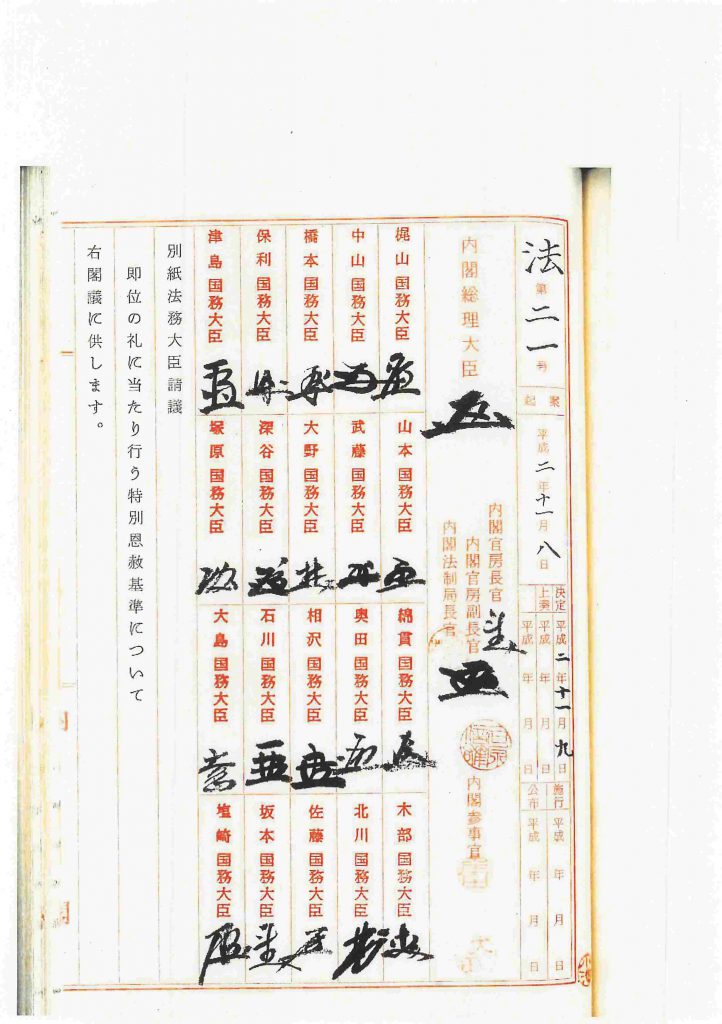 法第二一号
起案 平成二年十一月八日
決定 平成二年十一月九日
上奏 平成 年 月 日
施行 平成 年 月 日
公布 平成 年 月 日
内閣総理大臣
内閣官房長官
内閣官房副長官
内閣法制局長官
内閣参事官
梶山国務大臣
山本国務大臣
綿貫国務大臣
木部国務大臣
中山国務大臣
武藤国務大臣
奥田国務大臣
北川国務大臣
橋本国務大臣
大野国務大臣
相沢国務大臣
佐藤国務大臣
保利国務大臣
深谷国務大臣
石川国務大臣
坂本国務大臣
津島国務大臣
塚原国務大臣
大島国務大臣
塩崎国務大臣
別紙法務大臣請議
即位の礼に当たり行う特別恩赦基準について
右閣議に供します。